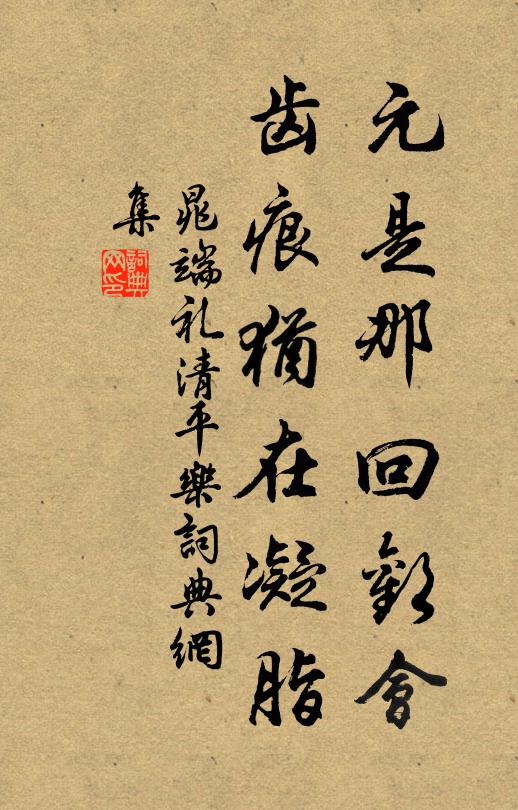 元是那回歡會
齿痕猶在凝脂
晁端礼清平樂詞典網
集
詞典网印